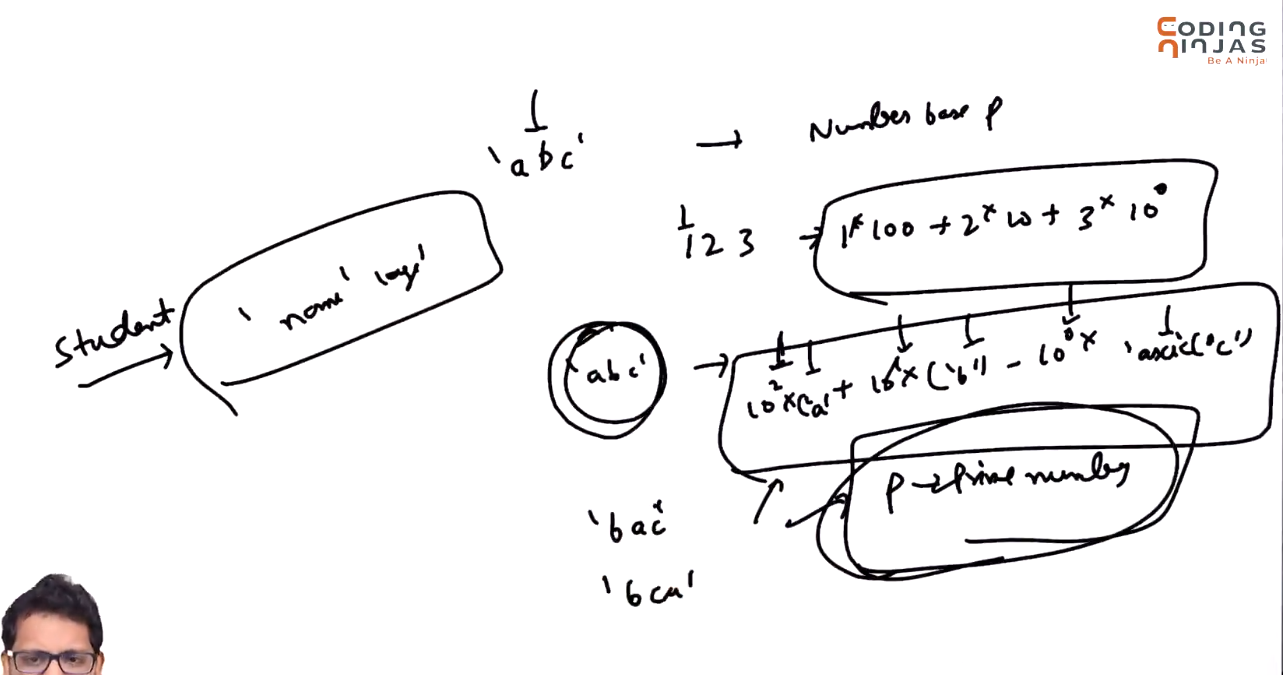 CODING
NINJAS
Be A Ninja
'abc' → Number base p
123 → 1*100 + 2*10 + 3*10⁰
Student
'name'
'abc' → 10²×('a' + 10¹×('b') - 10⁰× 'ascii('c')
p → Prime number
'bac'
'bca'